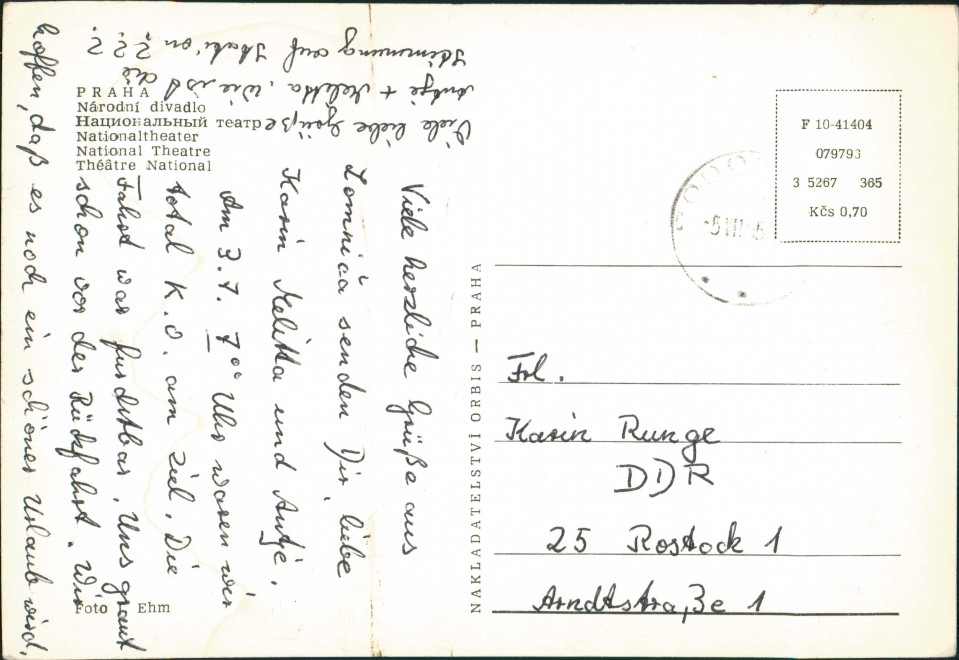 PRAHA
Národní divadlo
Национальный театр
Nationaltheater
National Theatre
Théâtre National
Viele herzliche Grüße aus
Lomnića senden Dir, liebe
Karin Melitta und Antje.
Am 3.7. 7⁰⁰ Uhr waren wir
total K.O. am Ziel. Die
Fahrt war furchtbar. Uns graut
schon vor der Rückfahrt. Wir
hoffen, daß es noch ein schöner Urlaub wird.
Viele liebe Grüße
Antje + Melitta, wie ist die
Stimmung auf Station ???
Foto Ehm
NAKLADATELSTVÍ ORBIS — PRAHA
F 10-41404
079793
3 5267 365
Kčs 0,70
Frl.
Karin Runge
DDR
25 Rostock 1
Arndtstraße 1